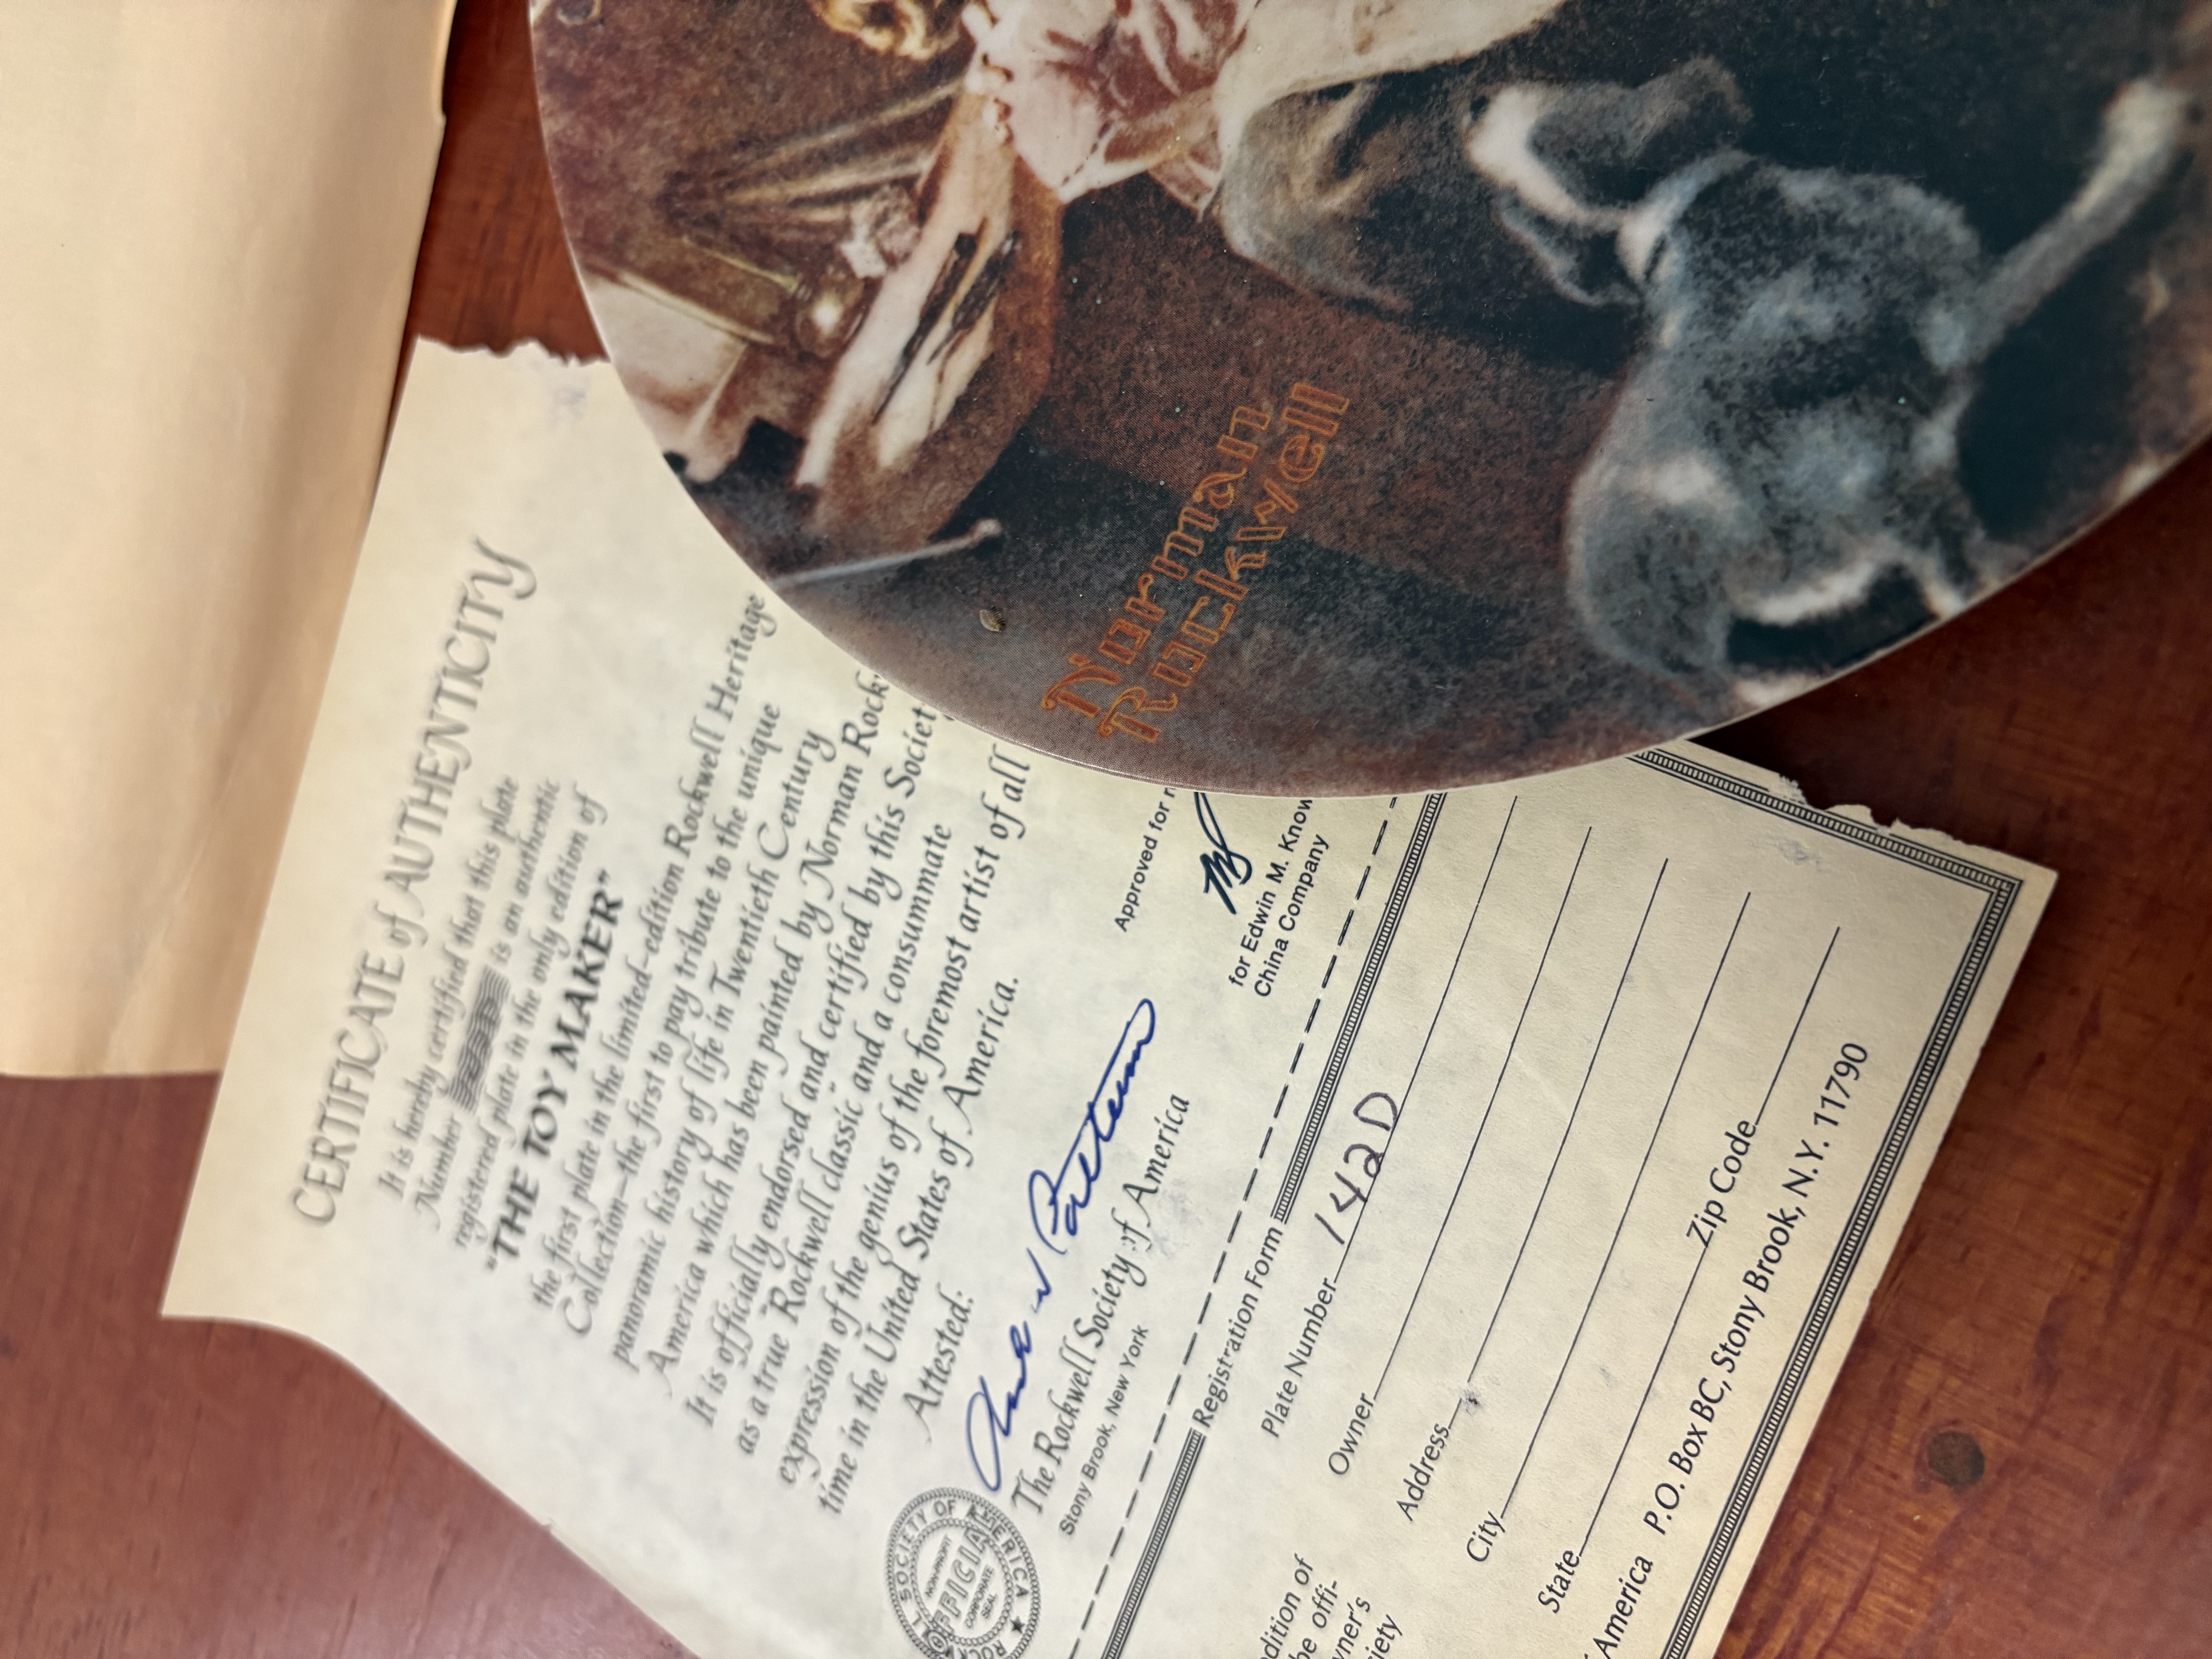 Norman
Rockwell
CERTIFICATE of AUTHENTICITY
It is hereby certified that this plate
Number is an authentic
registered plate in the only edition of
"THE TOY MAKER"
the first plate in the limited-edition Rockwell Heritage
Collection—the first to pay tribute to the unique
panoramic history of life in Twentieth Century
America which has been painted by Norman Rock
It is officially endorsed and certified by this Societ
as a true "Rockwell classic" and a consummate
expression of the genius of the foremost artist of all
time in the United States of America.
Attested:
The Rockwell Society of America
Stony Brook, New York
SOCIETY OF AMERICA ★ ROC
NON-PROFIT
OFFICIAL
CORPORATE
SEAL
Approved for
for Edwin M. Know
China Company
Registration Form
Plate Number 142D
Owner
Address
City
State Zip Code
America P.O. Box BC, Stony Brook, N.Y. 11790
dition of
he offi-
wner's
iety